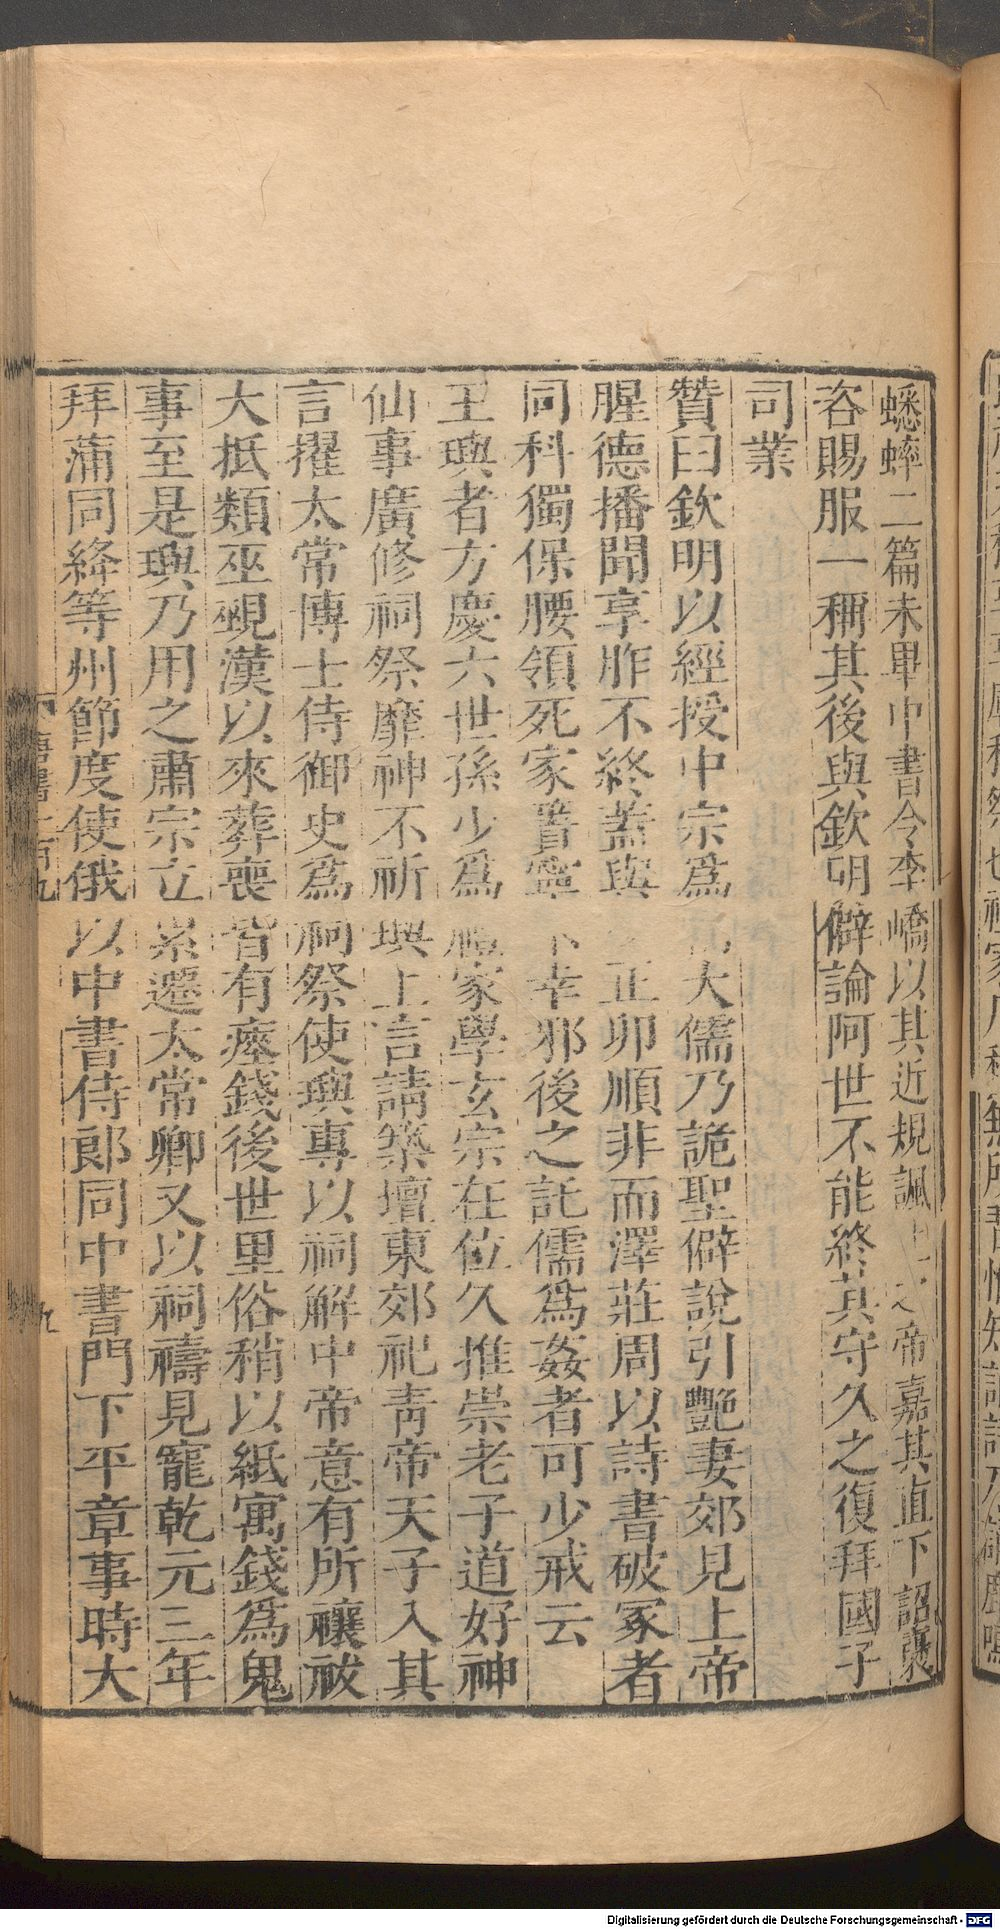 蟋蟀二篇未畢中書令李嶠以其近規諷帝嘉其直下詔襃
咨賜服一稱其後與欽明僻論阿世不能終其守久之復拜國子
司業
贊曰欽明以經授中宗爲大儒乃詭聖僻說引艷妻郊見上帝
腥德播聞享胙不終蓋與正卯順非而澤莊周以詩書破冢者
同科獨保腰領死家簀寧不幸邪後之託儒爲姦者可少戒云
王璵者方慶六世孫少爲禮家學玄宗在位久推崇老子道好神
仙事廣修祠祭靡神不祈璵上言請築壇東郊祀靑帝天子入其
言擢太常博士侍御史爲祠祭使璵專以祠解中帝意有所禳祓
大抵類巫覡漢以來葬喪皆有瘞錢後世里俗稍以紙寓錢爲鬼
事至是璵乃用之肅宗立累遷太常卿又以祠禱見寵乾元三年
拜蒲同絳等州節度使俄以中書侍郎同中書門下平章事時大
唐書一百九
九
Digitalisierung gefördert durch die Deutsche Forschungsgemeinschaft - DFG